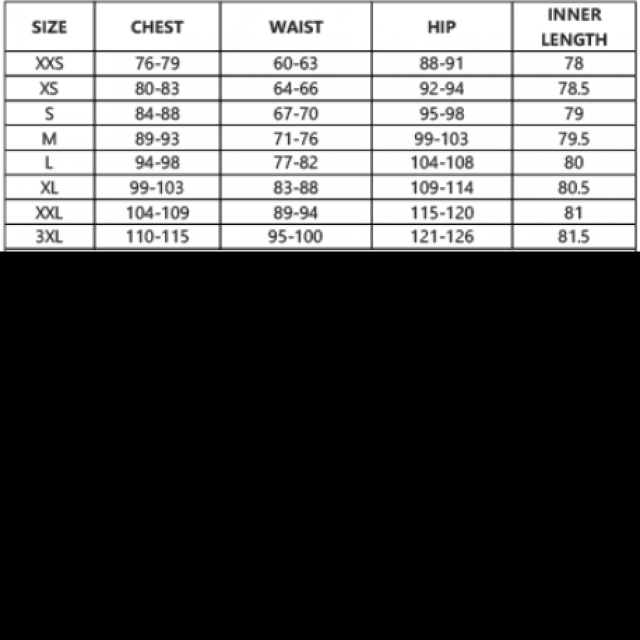 SIZE CHEST WAIST HIP INNER LENGTH
XXS 76-79 60-63 88-91 78
XS 80-83 64-66 92-94 78.5
S 84-88 67-70 95-98 79
M 89-93 71-76 99-103 79.5
L 94-98 77-82 104-108 80
XL 99-103 83-88 109-114 80.5
XXL 104-109 89-94 115-120 81
3XL 110-115 95-100 121-126 81.5